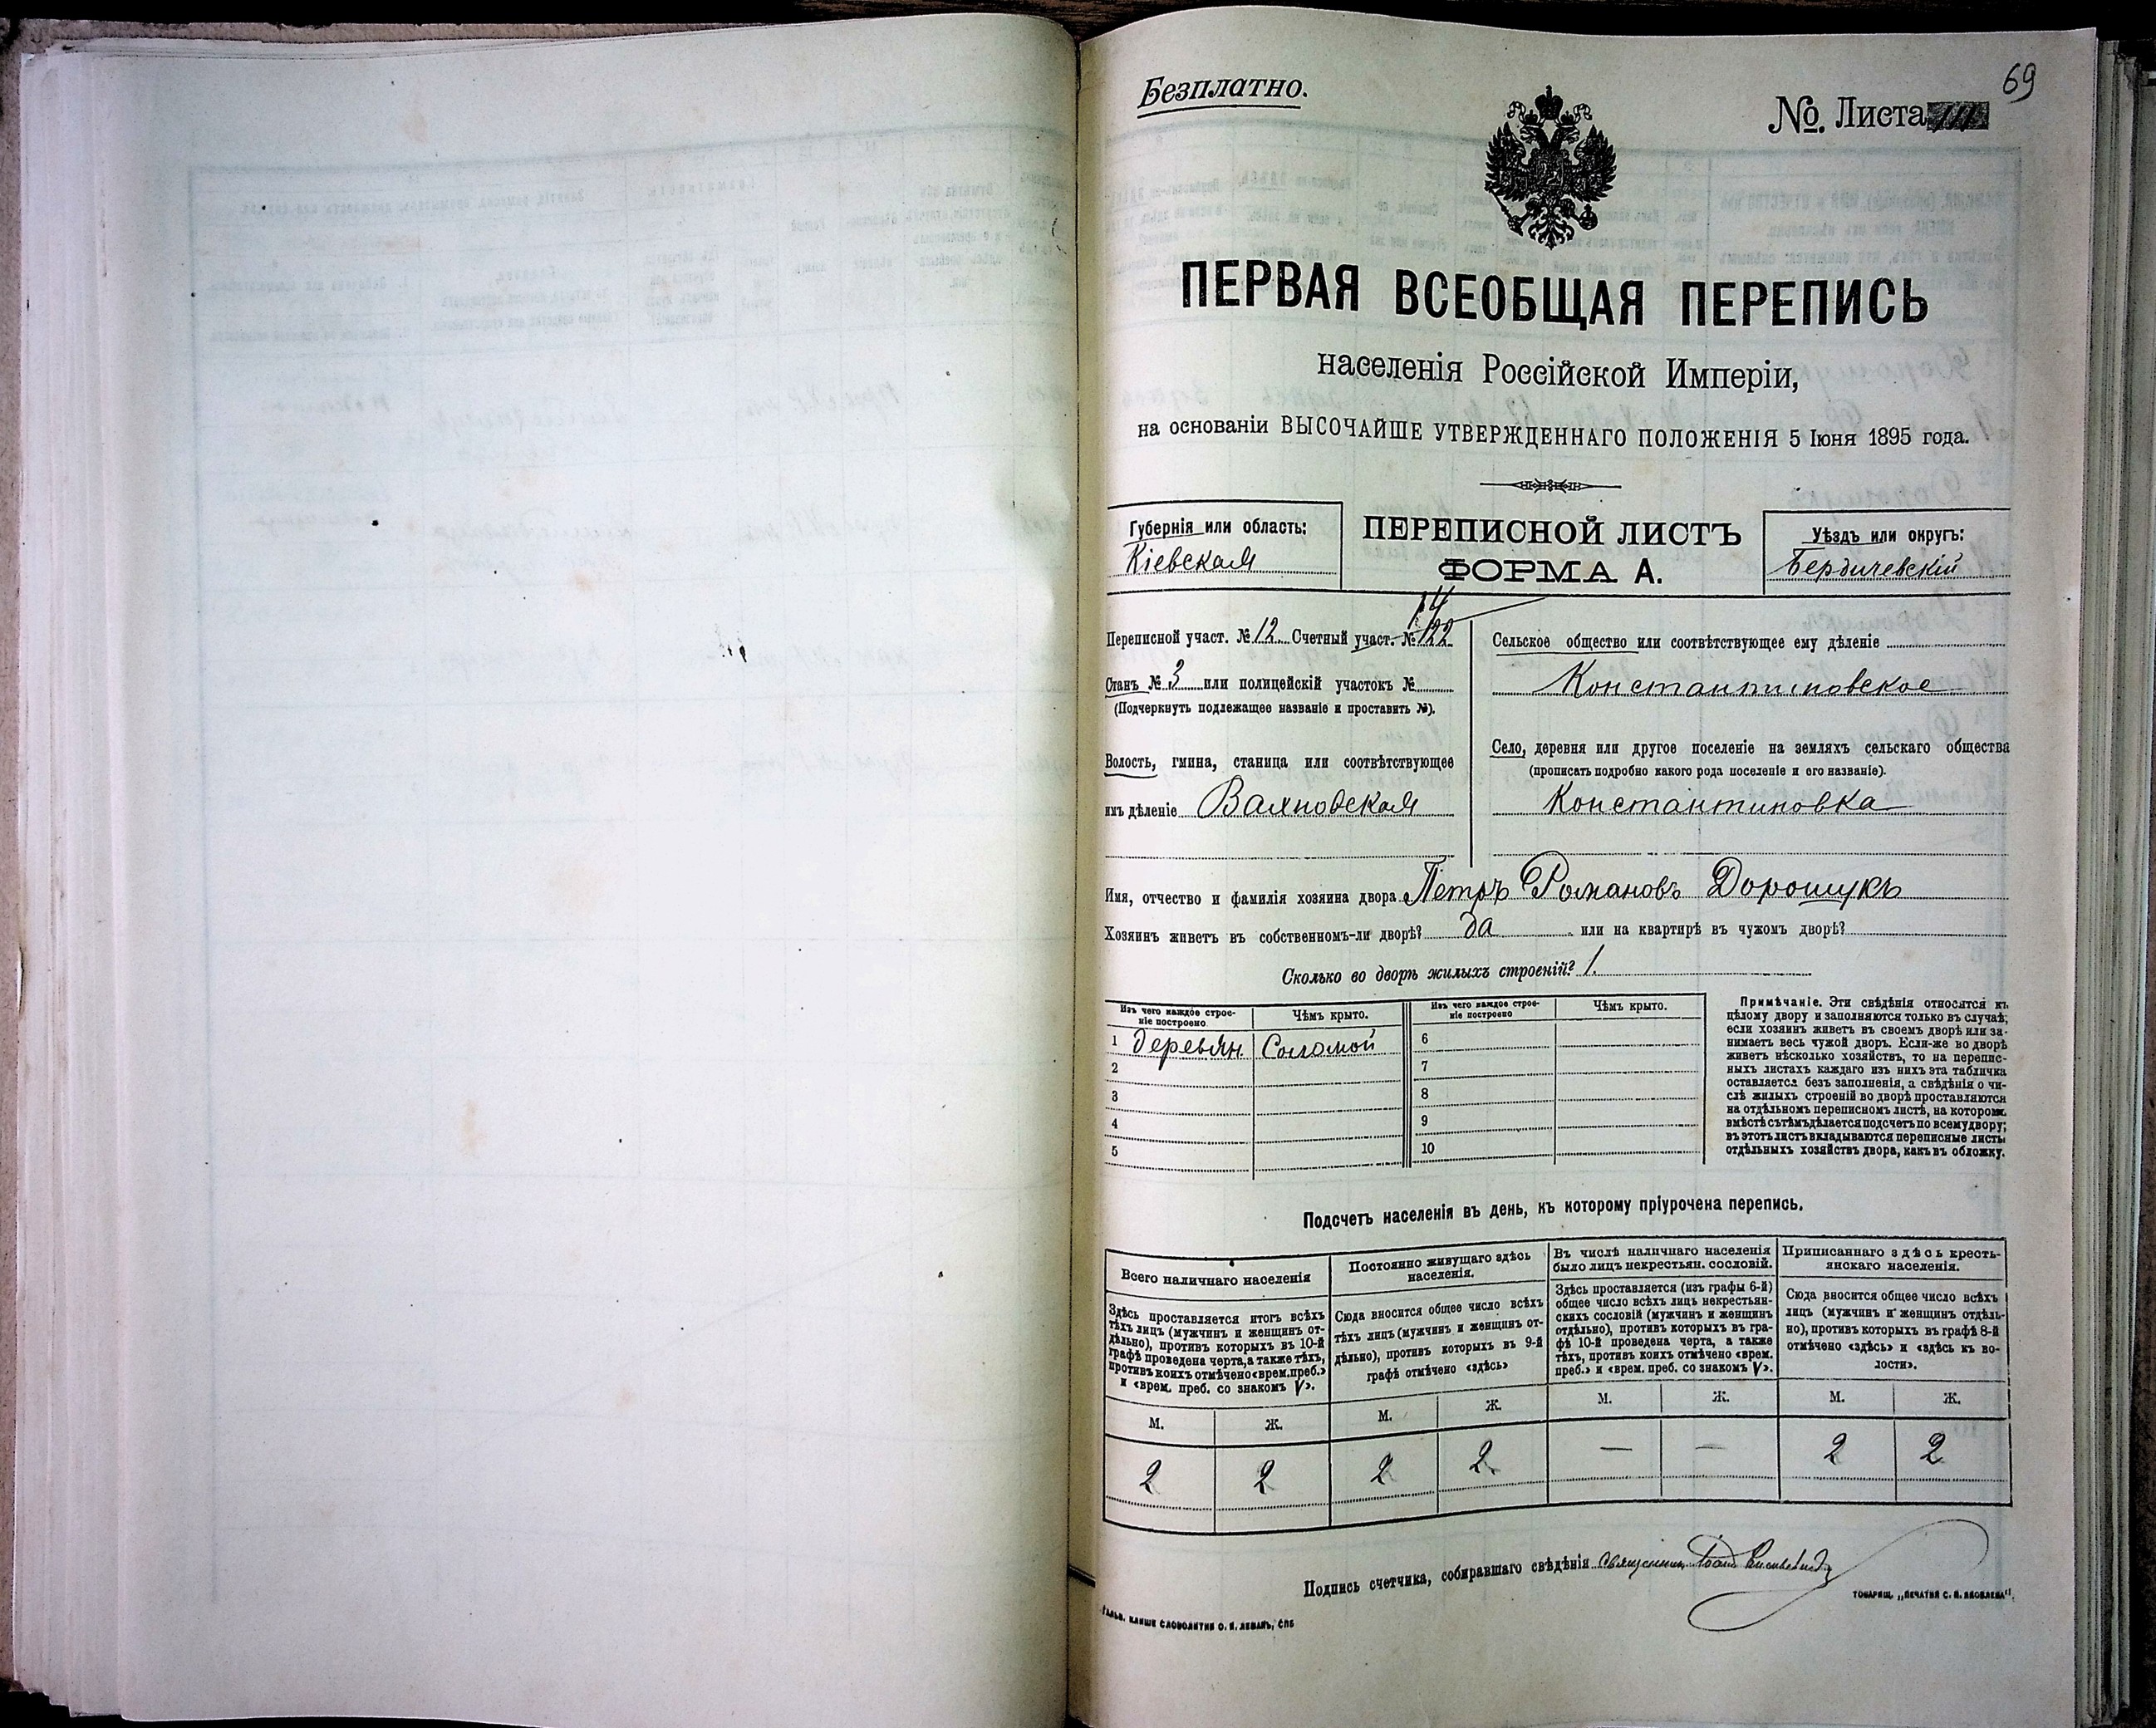 69
Безплатно.
№. Листа
ПЕРВАЯ ВСЕОБЩАЯ ПЕРЕПИСЬ
населенія Россійской Имперіи,
на основаніи ВЫСОЧАЙШЕ УТВЕРЖДЕННАГО ПОЛОЖЕНІЯ 5 Іюня 1895 года.
Губернія или область:
Кіевская
ПЕРЕПИСНОЙ ЛИСТЪ
ФОРМА А.
Уѣздъ или округъ:
Бердичевскій
14
Переписной участ. № 12 Счетный участ. № 122
Станъ № 3 или полицейскій участокъ №
(Подчеркнуть подлежащее названіе и проставить №).
Волость, гмина, станица или соотвѣтствующее
имъ дѣленіе Вахновская
Сельское общество или соотвѣтствующее ему дѣленіе
Константиновское
Село, деревня или другое поселеніе на земляхъ сельскаго общества
(прописать подробно какого рода поселеніе и его названіе).
Константиновка
Имя, отчество и фамилія хозяина двора Петръ Романовъ Дорошукъ
Хозяинъ живетъ въ собственномъ-ли дворѣ? да или на квартирѣ въ чужомъ дворѣ?
Сколько во дворѣ жилыхъ строеній? 1.
Изъ чего каждое строе-
ніе построено
Чѣмъ крыто.
Изъ чего каждое строе-
ніе построено
Чѣмъ крыто.
1 деревян. Соломой 6
2 7
3 8
4 9
5 10
Примѣчаніе. Эти свѣдѣнія относятся къ
цѣлому двору и заполняются только въ случаѣ,
если хозяинъ живетъ въ своемъ дворѣ или за-
нимаетъ весь чужой дворъ. Если-же во дворѣ
живетъ нѣсколько хозяйствъ, то на перепис-
ныхъ листахъ каждаго изъ нихъ эта табличка
оставляется безъ заполненія, а свѣдѣнія о чи-
слѣ жилыхъ строеній во дворѣ проставляются
на отдѣльномъ переписномъ листѣ, на которомъ
вмѣстѣ съ тѣмъ дѣлается подсчетъ по всему двору;
въ этотъ листъ вкладываются переписные листы
отдѣльныхъ хозяйствъ двора, какъ въ обложку.
Подсчетъ населенія въ день, къ которому пріурочена перепись.
Всего наличнаго населенія
Здѣсь проставляется итогъ всѣхъ
тѣхъ лицъ (мужчинъ и женщинъ от-
дѣльно), противъ которыхъ въ 10-й
графѣ проведена черта, а также тѣхъ,
противъ коихъ отмѣчено «врем. преб.»
и «врем. преб. со знакомъ V».
Постоянно живущаго здѣсь
населенія.
Сюда вносится общее число всѣхъ
тѣхъ лицъ (мужчинъ и женщинъ от-
дѣльно), противъ которыхъ въ 9-й
графѣ отмѣчено «здѣсь»
Въ числѣ наличнаго населенія
было лицъ некрестьян. сословій.
Здѣсь проставляется (изъ графы 6-й)
общее число всѣхъ лицъ некрестьян-
скихъ сословій (мужчинъ и женщинъ
отдѣльно), противъ которыхъ въ гра-
фѣ 10-й проведена черта, а также
тѣхъ, противъ коихъ отмѣчено «врем.
преб.» и «врем. преб. со знакомъ V».
Приписаннаго здѣсь кресть-
янскаго населенія.
Сюда вносится общее число всѣхъ
лицъ (мужчинъ и женщинъ отдѣль-
но), противъ которыхъ въ графѣ 8-й
отмѣчено «здѣсь» и «здѣсь къ во-
лости».
М. Ж. М. Ж. М. Ж. М. Ж.
2 2 2 2 — — 2 2
Подпись счетчика, собиравшаго свѣдѣнія Священник Іоан
ТОВАРИЩ. „ПЕЧАТНЯ С. П. ЯКОВЛЕВА"
Гальв. клише словолитни О. И. Леманъ, СПБ